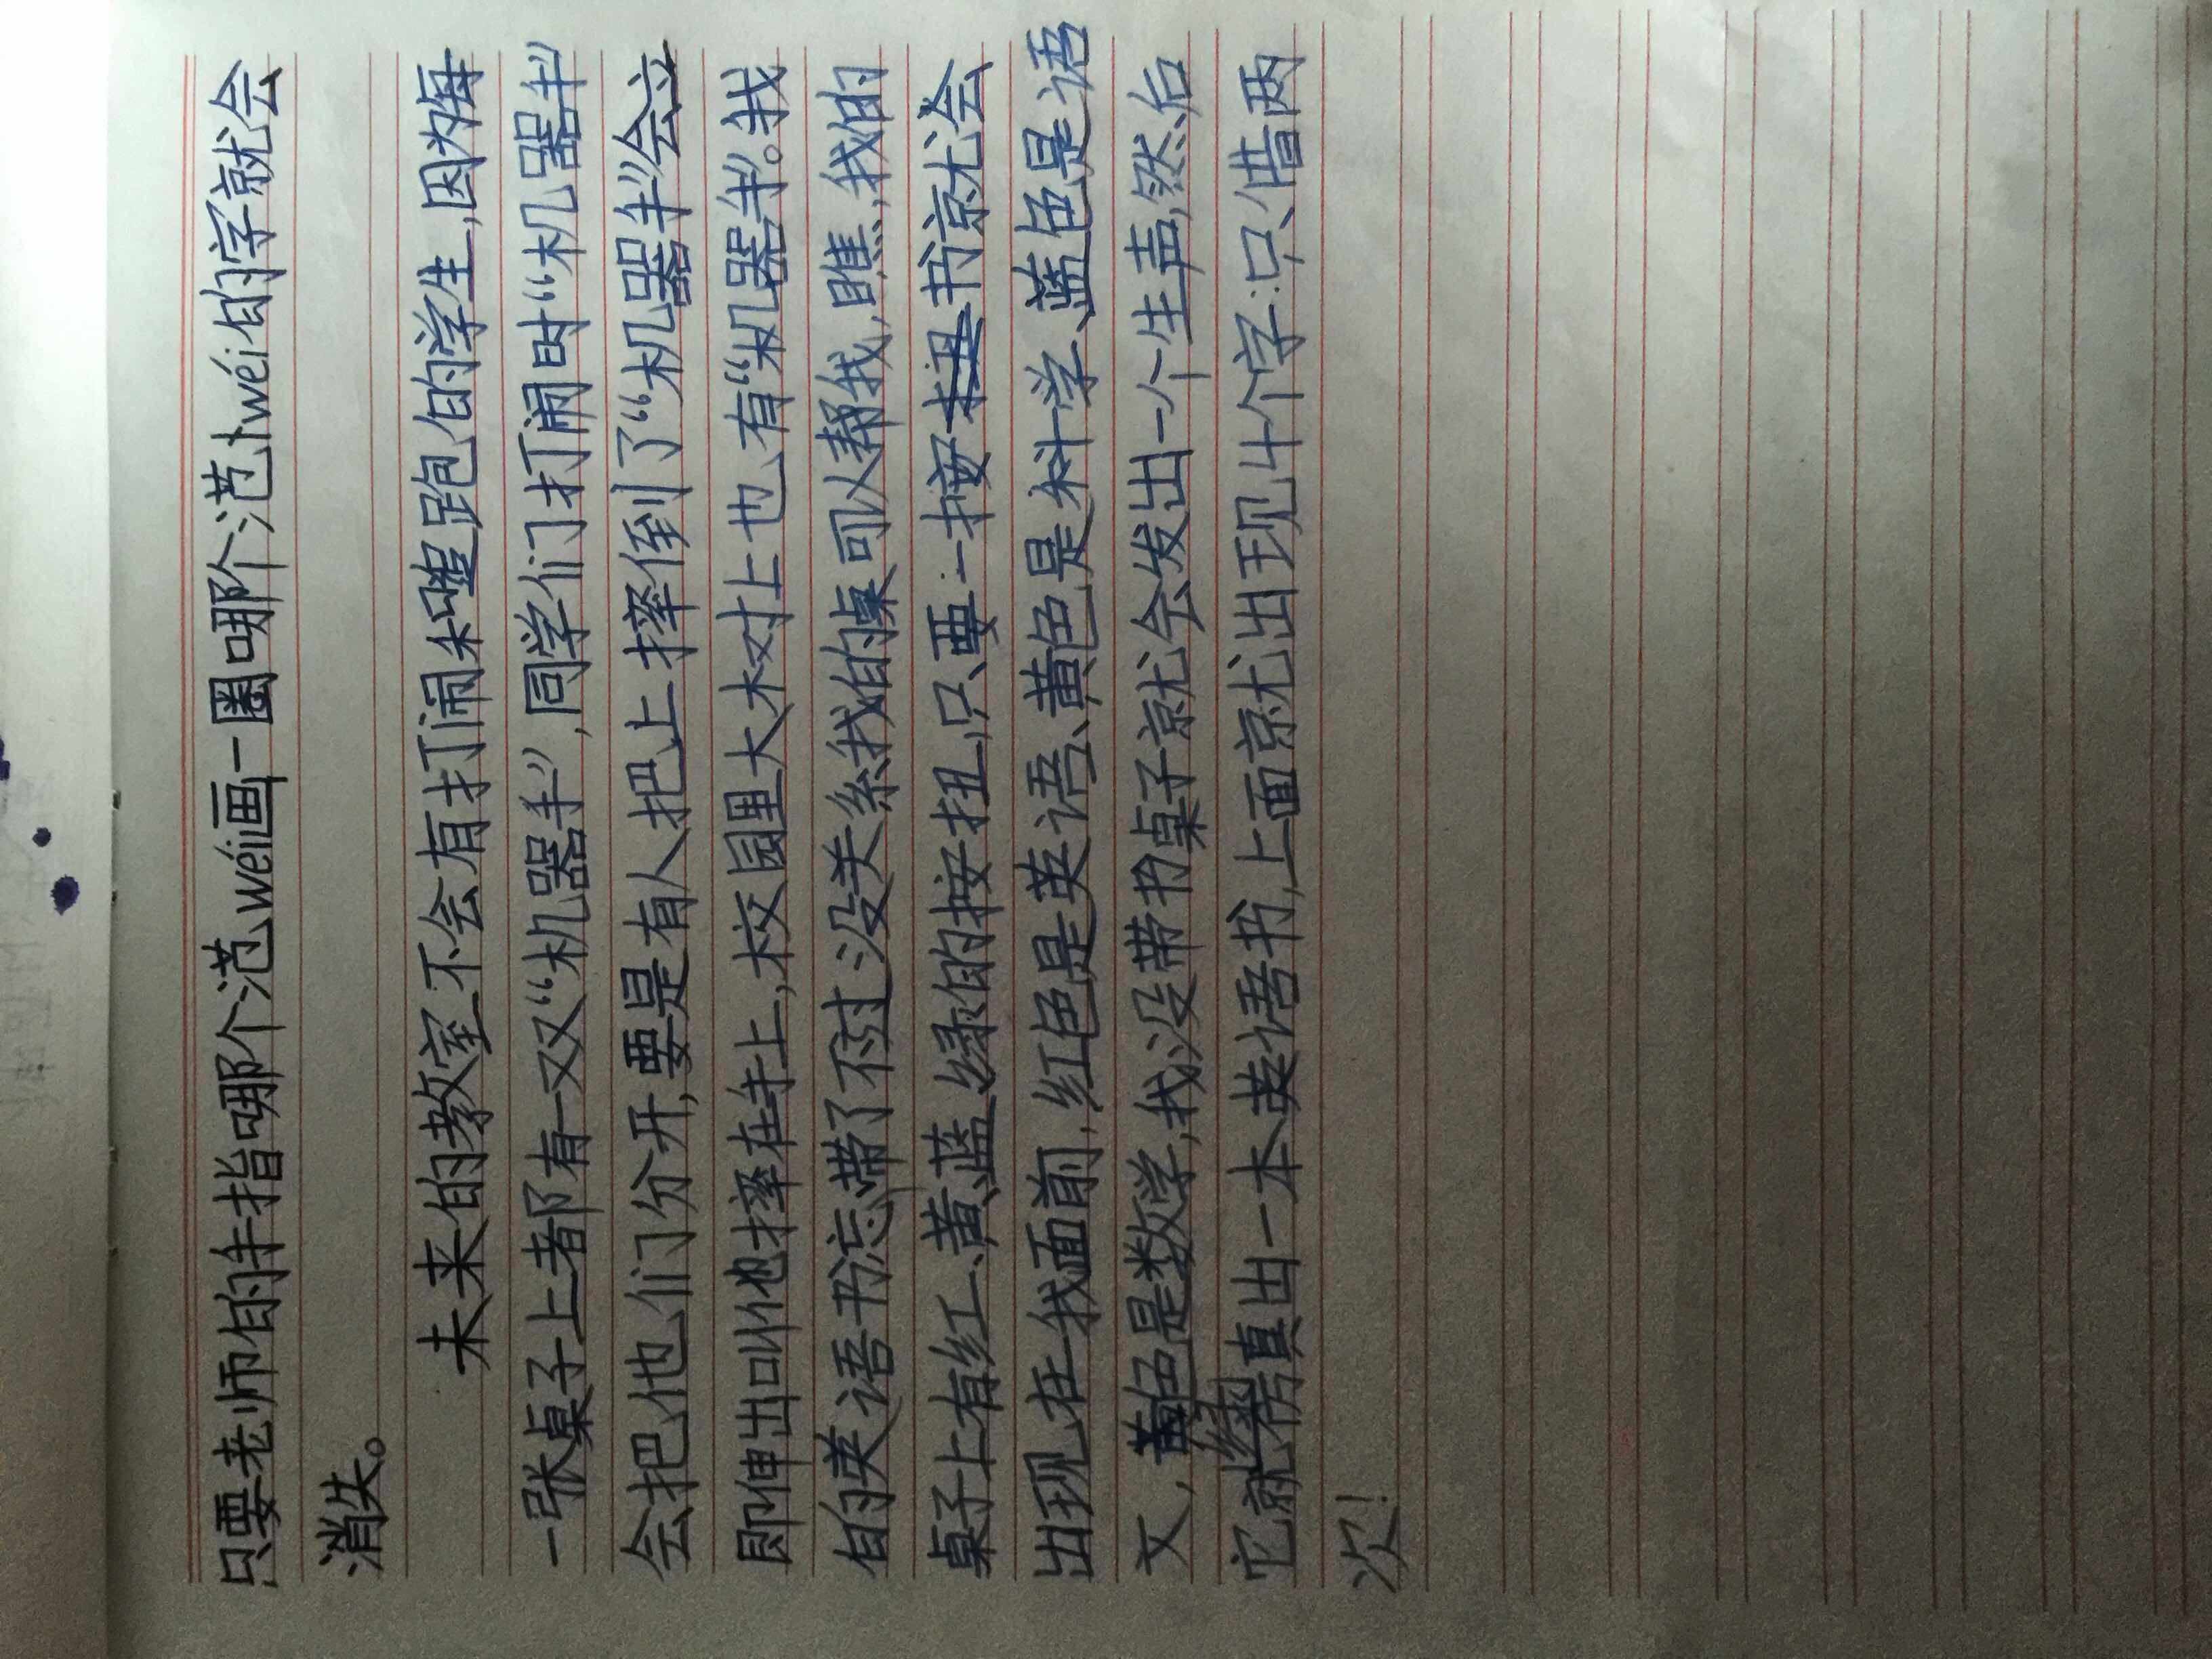 只要老师的手指哪个范wéi画一圈哪个范wéi的字就会
消失。
未来的教室不会有打闹和蹬跑的学生,因为每
一张桌子上都有一双“机器手”,同学们打闹时“机器手”
会把他们分开,要是有人把上摔倒了“机器手”会立
即伸出叫他摔在手上,校园里大树上也有“机器手”。我
的英语书忘带了不过没关系我的桌可以帮我,瞧,我的
桌子上有红、黄、蓝、绿的按扭,只要一按书就会
出现在我面前,红色是英语、黄色是科学、蓝色是语
文,绿色是数学,我没带书桌子就会发出一个生声,然后
它就旁真出一本英语书,上面就出现4个字:只借两
次!